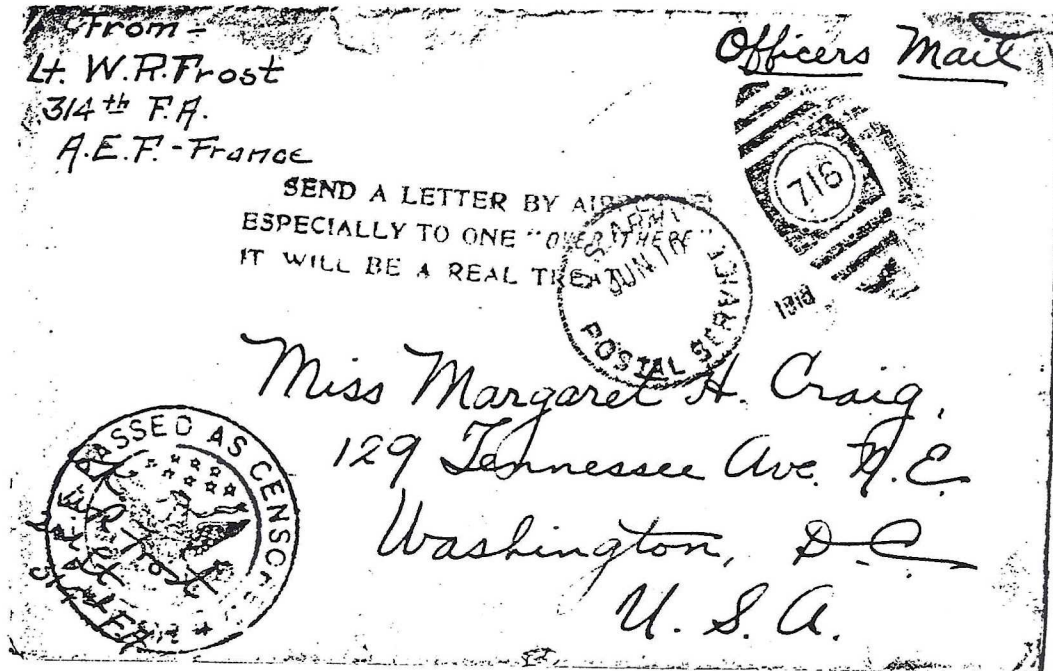 From -
Lt. W.R. Frost
314th F.A.
A.E.F. - France
Officers Mail
SEND A LETTER BY
ESPECIALLY TO ONE "OVER THERE"
IT WILL BE A REAL TREAT
U.S. ARMY POSTAL SERVICE
JUN
716
1918
Miss Margaret H. Craig,
129 Tennessee Ave. N.E.
Washington, D.C.
U.S.A.
PASSED AS CENSORED
W.R. Frost
314th F.A.